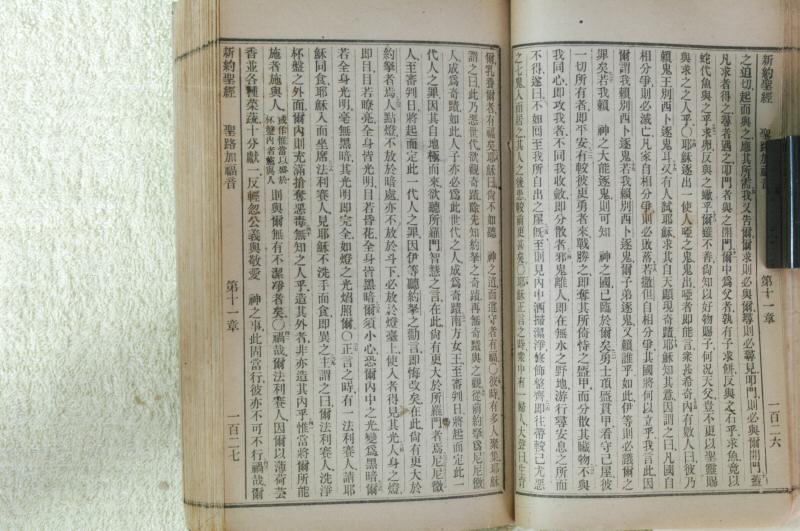 新約聖經 聖路加福音 第十一章 一百二六
之迫切、起而與之、應其所需、我又告爾、爾求則必與爾、尋則必尋見、叩門、則必與爾開門、蓋
凡求者得之、尋者遇之、叩門者與之開門、爾中爲父者、孰有子求餅、反與之石乎、求魚、竟以
蛇代魚與之乎、求卵、反與之蠍乎、爾雖不善、尙知以好物賜子、何况天父、豈不更以聖靈賜
與求之之人乎〇耶穌逐出一使人啞之鬼、鬼出、啞者即能言、衆甚希奇、內有數人曰、彼乃
賴鬼王別西卜逐鬼耳、又有人試耶穌、求其自天顯現奇蹟、耶穌知其意、因謂之曰、凡國自
相分爭、則必滅亡、凡家自相分爭、則必敗落、若撒但自相分爭、其國將何以立乎、我言此、因
爾謂我賴別西卜逐鬼、若我賴別西卜逐鬼、爾子弟逐鬼、又賴誰乎、如此、伊等則必議爾之
罪矣、若我賴 神之大能逐鬼、則可知 神之國已臨於爾矣、勇士頂盔貫甲、看守己屋、彼
一切所有者、即平安、有較彼更勇者來、戰勝之、即奪其所倚恃之盔甲、而分散其贓物、不與
我同心、即攻我者、不同我收斂、即分散者、邪鬼離人、即在無水之野地、游行尋安息之所而
不得、遂曰、不如回至我所自出之屋、旣至、則見內中洒掃潔淨、修飾整齊、即往帶較己尤惡
之七鬼、入而居之、其人之後患、較前更甚矣〇耶穌正言之時、衆中有一婦人、大聲曰、生育
爾、乳養爾者、有福矣、耶穌曰、尙不如聽 神之道而遵守者有福〇彼時有多人聚集、耶穌
謂之曰、此乃惡世代、欲觀奇蹟、除先知約拏之奇蹟、再無奇蹟與之觀、從前約拏爲尼尼微
人成爲奇蹟、如此人子亦必爲此世代之人成爲奇蹟、南方女王、至審判日、將起而定此一
代人之罪、因其自地極而來、欲聽所羅門智慧之言、在此尙有更大於所羅門者焉、尼尼微
人、至審判日、將起而定此一代人之罪、因伊等聽約拏之勸言、即悔改矣、在此尙有更大於
約拏者焉、人點燈、不放於暗處、亦不放於斗下、必放於燈臺上、使入者得見其光、人身之燈、
即目、目若瞭亮、全身皆光明、目若昏花、全身皆黑暗、爾須小心、恐爾內中之光變爲黑暗、爾
若全身光明、毫無黑暗、其光明即完全、如燈之光焰照爾〇正言之時、有一法利賽人、請耶
穌同食、耶穌入而坐席、法利賽人、見耶穌不洗手而食、即異之、主謂之曰、爾法利賽人、洗淨
杯盤之外面、爾內則充滿搶奪惡毒、無知之人乎、造其外者、非亦造其內乎、惟當將爾所能
施者施與人、或作惟當以盛於杯盤內者施與人則與爾無有不潔淨者矣〇禍哉、爾法利賽人、因爾以薄荷芸
香並各種菜蔬、十分獻一、反輕忽公義與敬愛 神之事、此固當行、彼亦不可不行、禍哉、爾
新約聖經 聖路加福音 第十一章 一百二七